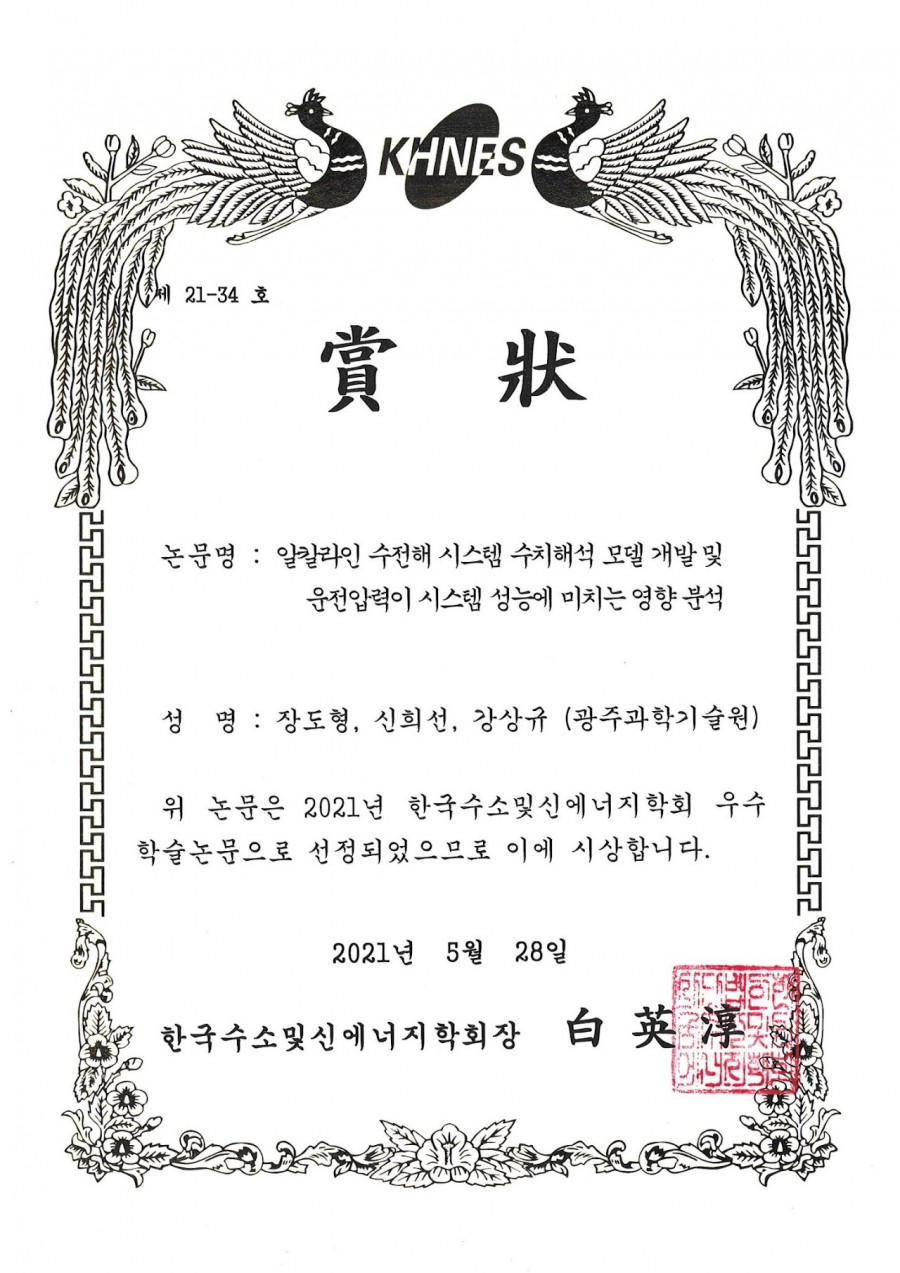 KHNES
제 21-34 호
賞 狀
논문명 : 알칼라인 수전해 시스템 수치해석 모델 개발 및
운전압력이 시스템 성능에 미치는 영향 분석
성 명 : 장도형, 신희선, 강상규 (광주과학기술원)
위 논문은 2021년 한국수소및신에너지학회 우수
학술논문으로 선정되었으므로 이에 시상합니다.
2021년 5월 28일
한국수소및신에너지학회장 白英淳